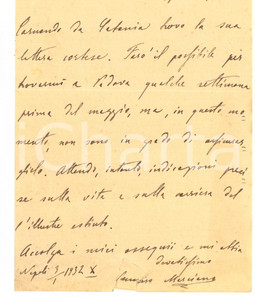 Tornando da Catania trovo la sua
lettera cortese. Farò il possibile per
trovarmi a Padova qualche settimana
prima del maggio, ma, in questo mo-
mento, non sono in grado di assicurar-
glielo. Attendo, intanto, indicazioni preci-
se sulla vita e sulla carriera del-
l'illustre estinto.
Accolga i miei ossequii e mi abbia
devotissimo
Napoli 1932 X
Gennaro Marciano